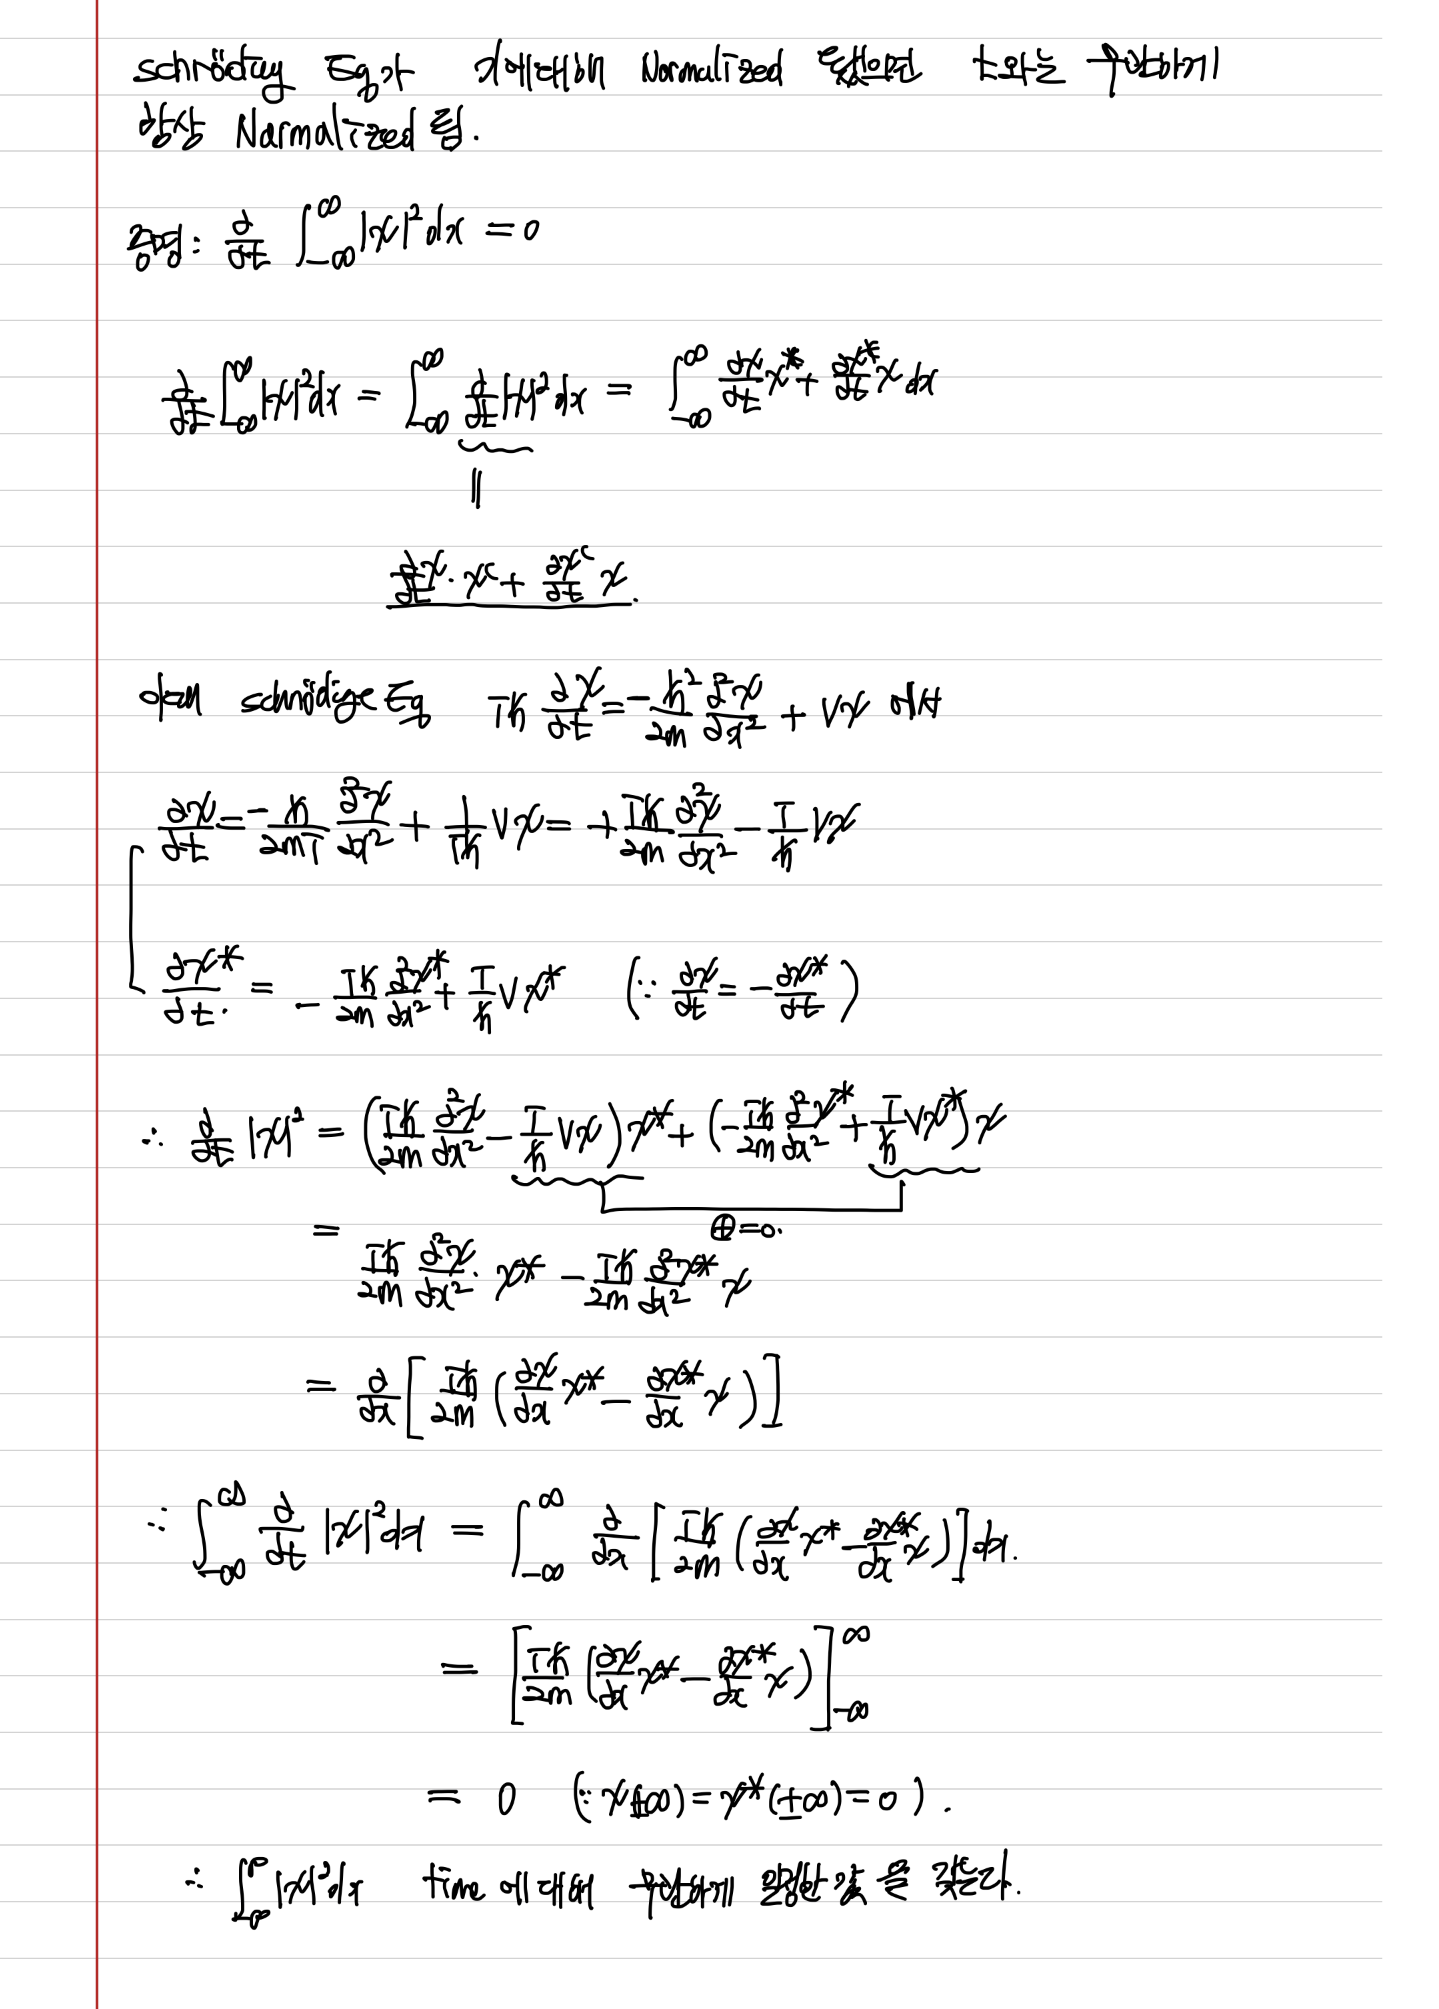 schröding Eq가 x에대해 Normalized 됐으면 t와는 무관하게
항상 Normalized 됨.
증명: d/dt ∫_{-∞}^{∞} |ψ|² dx = 0
d/dt ∫_{-∞}^{∞} |ψ|² dx = ∫_{-∞}^{∞} d/dt |ψ|² dx = ∫_{-∞}^{∞} ∂ψ/∂t ψ* + ∂ψ*/∂t ψ dx
||
∂/∂t ψ · ψᶜ + ∂ψᶜ/∂t ψ.
schrödige Eq iħ ∂ψ/∂t = -ħ²/2m ∂²ψ/∂x² + Vψ 에서
∂ψ/∂t = -ħ/2mi ∂²ψ/∂x² + 1/iħ Vψ = +iħ/2m ∂²ψ/∂x² - i/ħ Vψ
∂ψ*/∂t = - iħ/2m ∂²ψ*/∂x² + i/ħ Vψ* (∵ ∂ψ/∂t = -∂ψ*/∂t)
∴ ∂/∂t |ψ|² = (iħ/2m ∂²ψ/∂x² - i/ħ Vψ)ψ* + (-iħ/2m ∂²ψ*/∂x² + i/ħ Vψ*)ψ
⊕=0.
= iħ/2m ∂²ψ/∂x² · ψ* - iħ/2m ∂²ψ*/∂x² ψ
= ∂/∂x [iħ/2m (∂ψ/∂x ψ* - ∂ψ*/∂x ψ)]
∴ ∫_{-∞}^{∞} ∂/∂t |ψ|² dx = ∫_{-∞}^{∞} ∂/∂x [iħ/2m (∂ψ/∂x ψ* - ∂ψ*/∂x ψ)] dx.
= [iħ/2m (∂ψ/∂x ψ* - ∂ψ*/∂x ψ)]_{-∞}^{∞}
= 0 (∵ ψ(±∞) = ψ*(±∞) = 0).
∴ ∫_{-∞}^{∞} |ψ|² dx time 에 대해 무관하게 일정한 값을 갖는다.